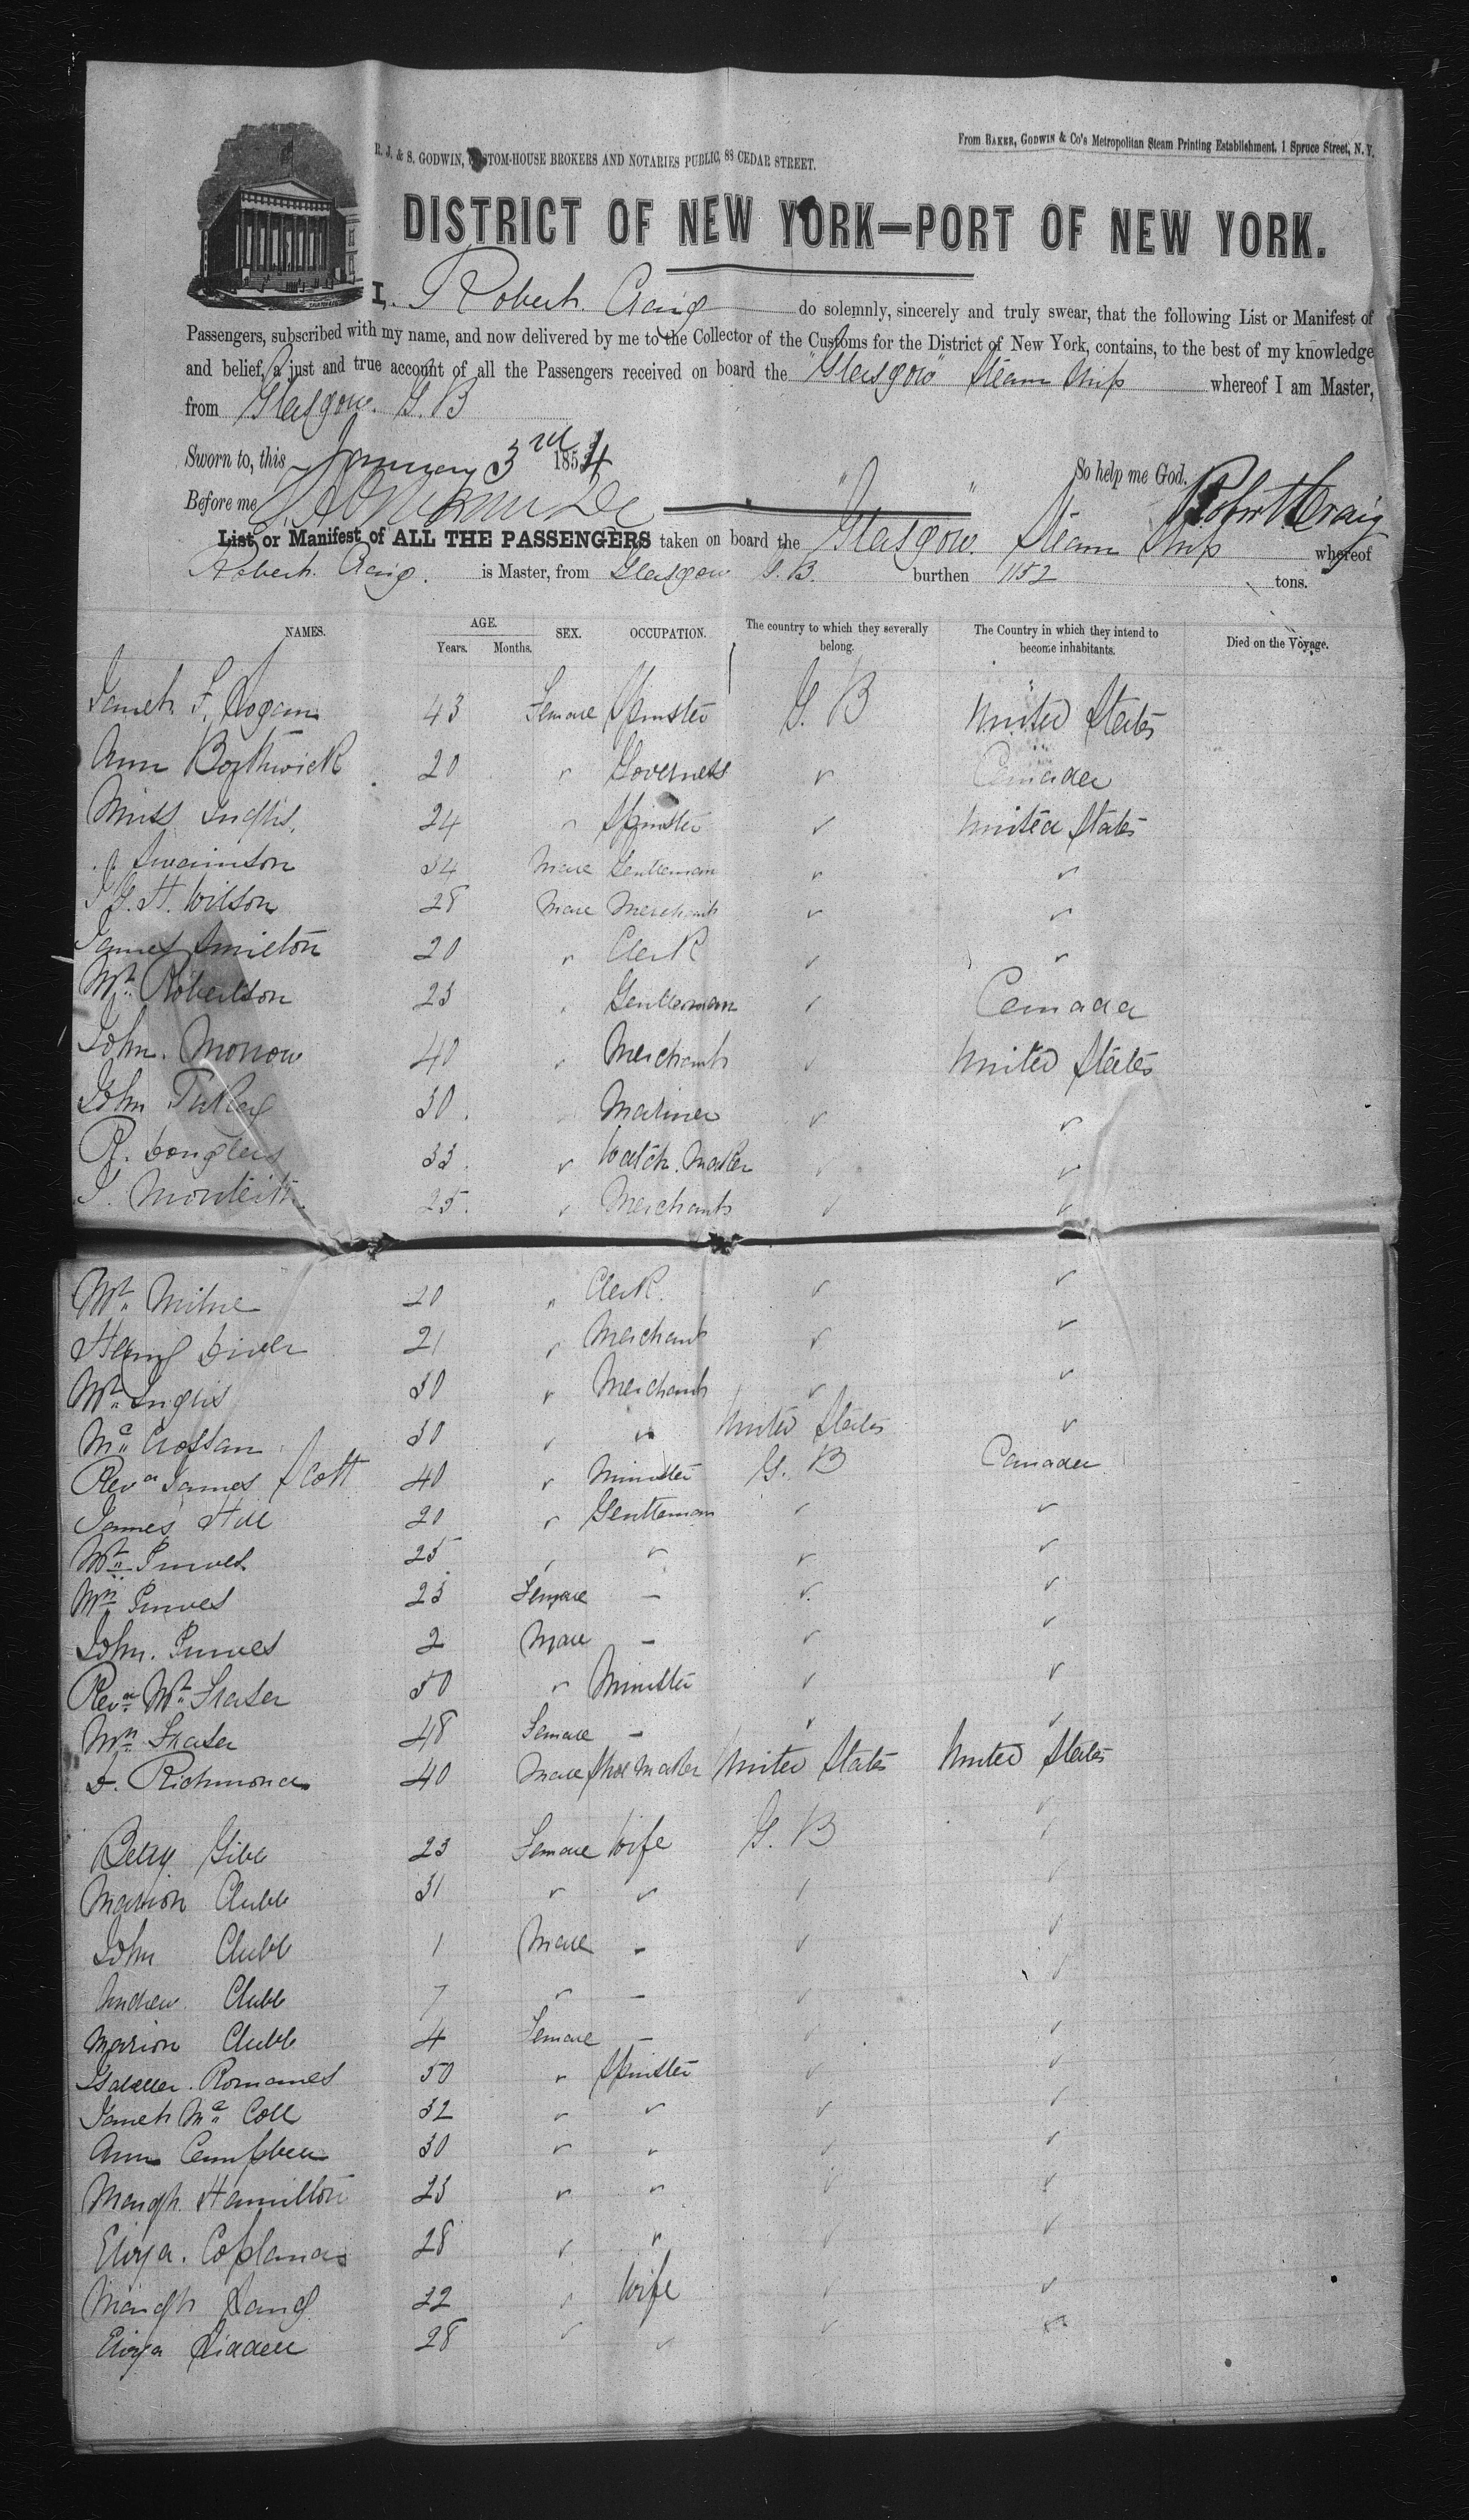 R. J. & S. GODWIN, CUSTOM-HOUSE BROKERS AND NOTARIES PUBLIC, 88 CEDAR STREET.
From BAKER, GODWIN & Co's Metropolitan Steam Printing Establishment, 1 Spruce Street, N. Y.
DISTRICT OF NEW YORK—PORT OF NEW YORK.
I, Robert Craig do solemnly, sincerely and truly swear, that the following List or Manifest of
Passengers, subscribed with my name, and now delivered by me to the Collector of the Customs for the District of New York, contains, to the best of my knowledge
and belief, a just and true account of all the Passengers received on board the "Glasgow" Steam Ship whereof I am Master,
from Glasgow. G. B
Sworn to, this January 3rd 1854
So help me God.
Before me
Robert Craig
List or Manifest of ALL THE PASSENGERS taken on board the "Glasgow" Steam Ship whereof
Robert Craig. is Master, from Glasgow G. B. burthen 1152 tons.
NAMES. AGE. Years. Months. SEX. OCCUPATION. The country to which they severally belong. The Country in which they intend to become inhabitants. Died on the Voyage.
Janet F. Logan 43 Female Spinster G. B United States
Ann Borthwick 20 " Governess " Canada
Miss Inglis. 24 " Spinster " United States
J. Swainson 34 Male Gentleman " "
J G. H. Wilson 28 Male Merchant " "
James Smieton 20 " Clerk " "
Mr. Robertson 23 " Gentleman " Canada
John. Morrow 40 " Merchant " United States
John 30. " Mariner " "
R. Douglas 33. " Watch. Maker " "
J. Monteith. 25. " Merchant " "
Mr. Milne 20 " Clerk. " "
21 " Merchant " "
Mr. Inglis 30 " Merchant " "
Mc Crossan 30 " " United States "
Revd James Scott 40 " Minister G. B Canada
James Hill 20 " Gentleman " "
Mr. Purves 25 " " " "
Mrs Purves 23 Female - " "
John. Purves 2 Male - " "
Revd Mr. Fraser 50 " Minister " "
Mrs Fraser 48 Female - " "
D. Richmond 40 Male Shoe Maker United States United States
Betsy Gibb 23 Female Wife G. B "
Marion Clubb 31 " " " "
John Clubb 1 Male - " "
Andrew Clubb 7 " - " "
Marion Clubb 4 Female - " "
Isabella. Romanes 50 " Spinster " "
Janet Mc Coll 32 " " " "
Ann Campbell 30 " " " "
Margt. Hamilton 23 " " " "
Eliza. Copland 28 " " " "
Margt Lang 22 " Wife " "
Eliza Liddell 28 " " " "